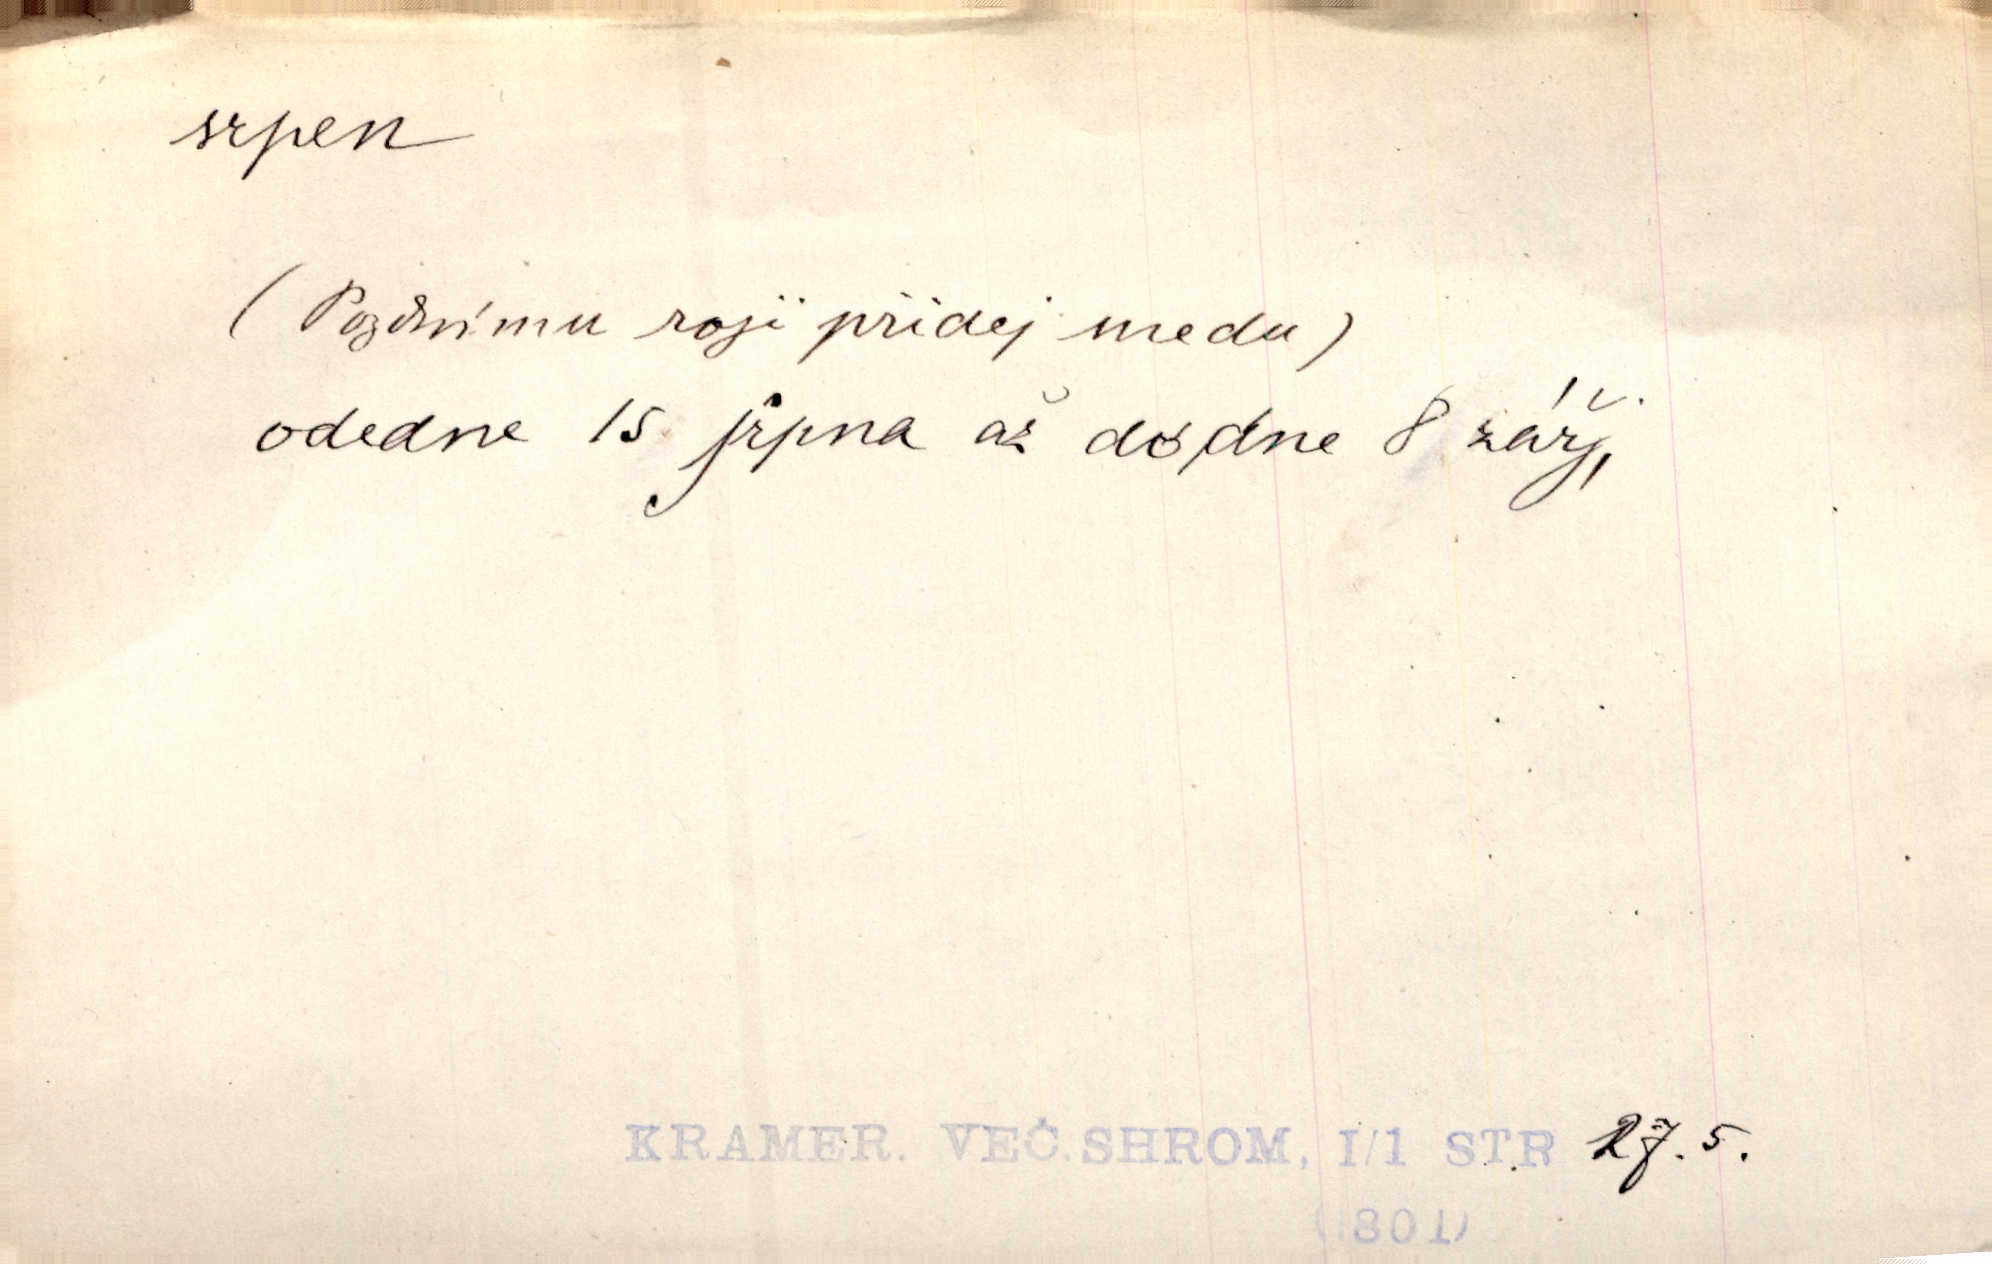 srpen
(Pozdnímu roji přidej medu)
odedne 15 srpna až do dne 8 září,
KRAMER. VEČ. SHROM, I/1 STR 27. 5.
(801)